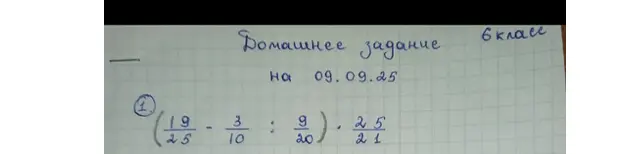 Домашнее задание 6 класс
на 09.09.25
① (19/25 - 3/10 : 9/20) · 25/21